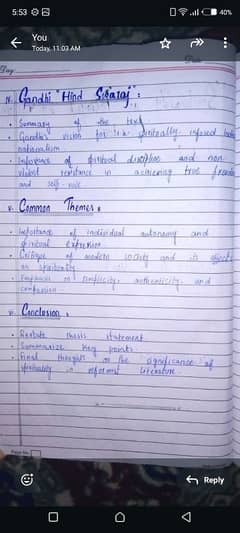 5:53
40%
You
Today, 11:03 AM
Date
IV. Gandhi "Hind Swaraj":
• Summary of the text
• Gandhi's vision for spiritually infused
nationalism
• Importance of spiritual discipline and non
violent resistance in achieving true freedom
and self-rule
V. Common Themes:
• Importance of individual autonomy and
spiritual expression
• Critique of modern society and its
on spirituality
• Emphasis on simplicity, authenticity and
compassion
VI. Conclusion:
• Restate thesis statement
• Summarize key points
• Final thoughts on the significance of
spirituality in reformist literature
Page No.
Reply